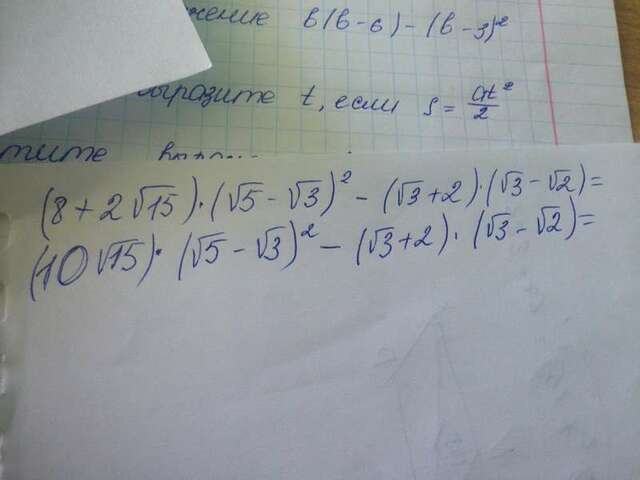 жение в(в-6)-(в-3)²
выразите t, если s = at²/2
тите
(8+2√15)·(√5-√3)²-(√3+2)·(√3-√2)=
(10√15)·(√5-√3)²-(√3+2)·(√3-√2)=